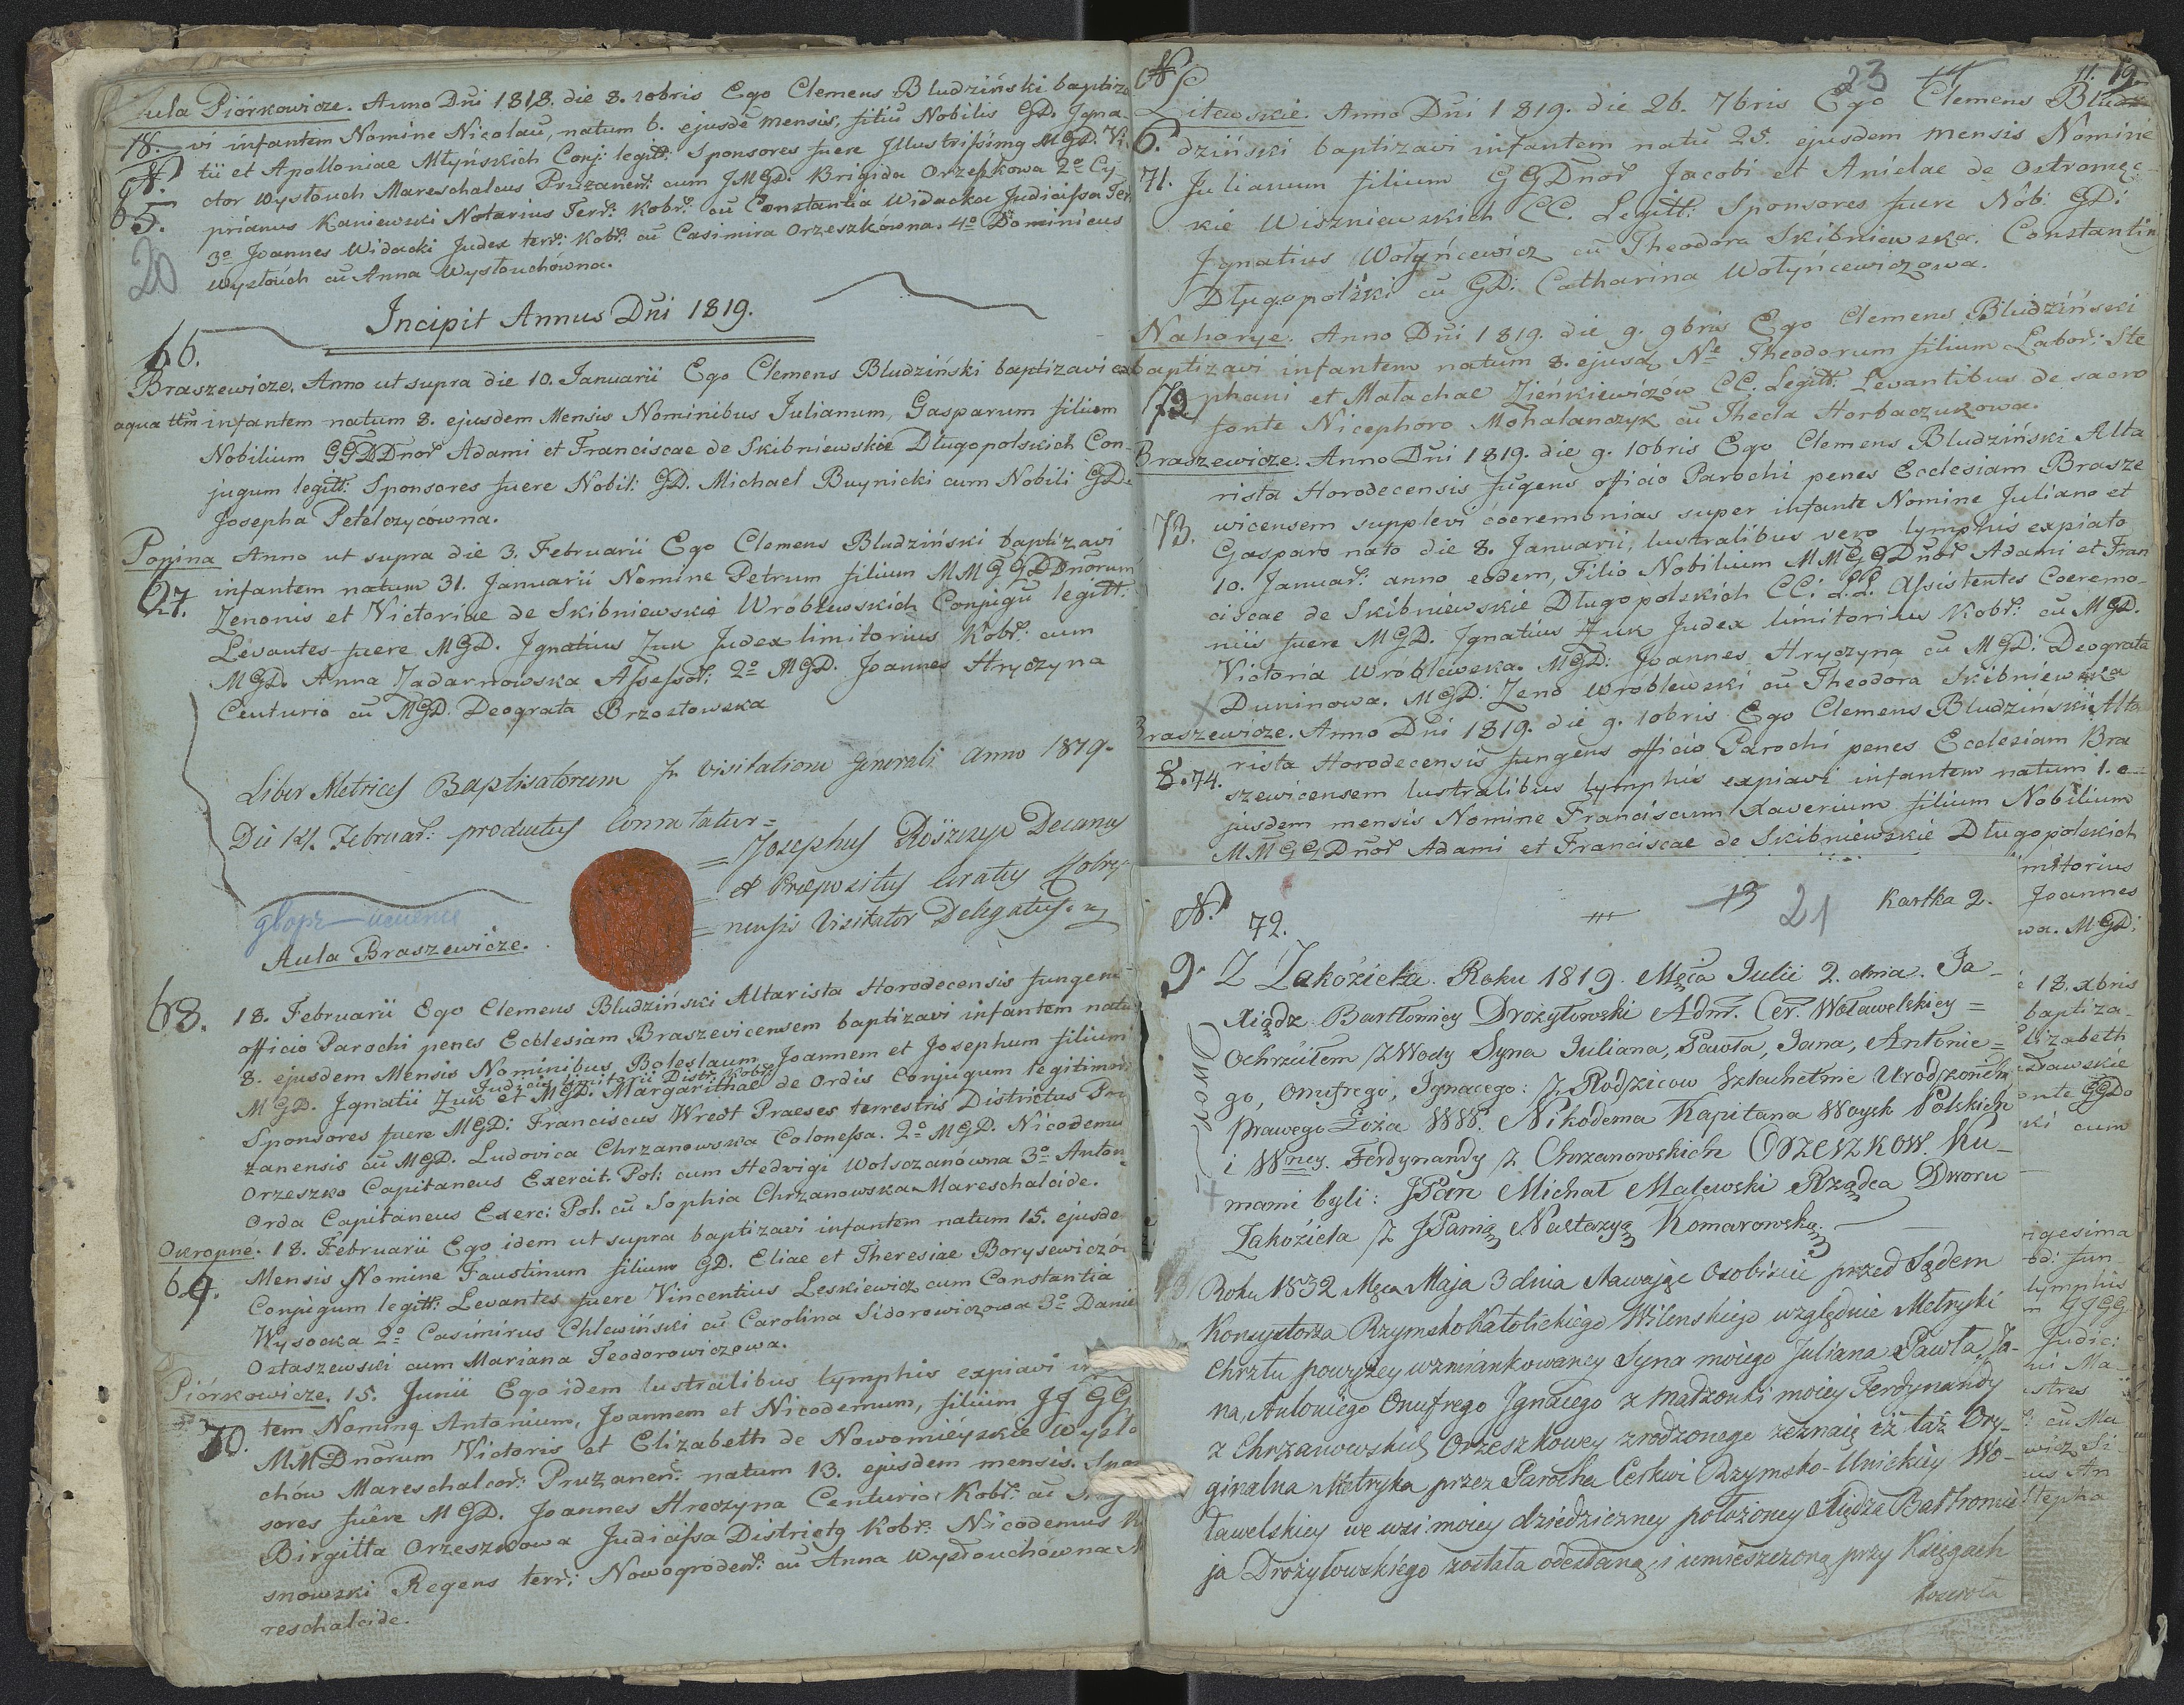 Aula Piórkowicze. Anno Dni 1818. die 8. 10bris Ego Clemens Bludziński baptiza
18. vi infantem Nomine Nicolaū, natum 6. ejusdē mensis, filiū Nobilis GD. Igna-
N. tii et Apolloniae Młyńskich Conj: legitt: Sponsores fuere Illustrissimq MGD. Vi-
65. ctor Wysłouch Mareschalcus Pruzanen: cum JMGD. Brigida Orzeszkowa 2o Cy
prianus Kaniewski Notarius Terr: Kobr: cū Constantia Widacka Judicissa Ter.
20
3o Joannes Widacki Judex terr: Kobr: cū Casimira Orzeszkówna. 4o Dominicus
Wysłouch cū Anna Wysłouchówna.
Incipit Annus Dni 1819.
66.
Braszewicze. Anno ut supra die 10. Januarii Ego Clemens Bludziński baptizavi ex
aqua ttm infantem natum 8. ejusdem Mensis Nominibus Julianum, Gasparum filium
Nobilium GGDDnor Adami et Franciscae de Skibniewskie Długopolskich Con-
jugum legitt: Sponsores fuere Nobil: GD. Michael Buynicki cum Nobili GD.
Josepha Petelczycówna.
Popina Anno ut supra die 3. Februarii Ego Clemens Bludziński baptizavi
67. infantem natum 31. Januarii Nomine Petrum filium MMGGDDnorum
Zenonis et Victoriae de Skibniewskie Wróblewskich Conjugū legitt:
Levantes fuere MGD. Ignatius Zuk Judex limitorius Kobr: cum
MGD. Anna Zadarnowska Assessor: 2o MGD. Joannes Hryczyna
Centurio cū MGD. Deograta Brzostowska
Liber Metrices Baptisatorum in visitatione Generali Anno 1819.
Die 14. Februar: productus connotatur =
= Josephus Rószczyc Decanus
= et Praepositus Curatus Kobry-
= nensis Visitator Delegatus
Aula Braszewicze.
68. 18. Februarii Ego Clemens Bludziński Altarista Horodecensis fungens
officio Parochi penes Ecclesiam Braszevicensem baptizavi infantem natū
8. ejusdem Mensis Nominibus Boleslaum, Joannem et Josephum filium
Judicis limitorii Distr: Kobr:
MGD. Ignatii Zuk et MGD. Margarithae de Ordis Conjugum legitimor
Sponsores fuere MGD: Franciscus Wredt Praeses terrestris Districtus Pru
zanensis cū MGD. Ludovica Chrzanowska Colonessa. 2o MGD. Nicodemus
Orzeszko Capitaneus Exercit. Pol: cum Hedvigi Wolsczanówna 3o Anton
Orda Capitaneus Exerc: Pol. cū Sophia Chrzanowska Mareschalcide.
Okropné. 18. Februarii Ego idem ut supra baptizavi infantem natum 15. ejusde
69. Mensis Nomine Faustinum filium GD. Eliae et Theresiae Borysewiczów
Conjugum legitt: Levantes fuere Vincentius Leskiewicz cum Constantia
Wysocka 2o Casimirus Chlewiński cū Carolina Sidorowiczowa 3o Danie
Ostaszewski cum Mariana Teodorowiczowa.
Piórkowicze. 15. Junii Ego idem lustralibus lymphis expiavi in
70. tem Nominq Antonium, Joannem et Nicodemum, filium JJGG
MMDnorum Victoris et Elizabeth de Nowomieyskie Wysło
chów Mareschalcor: Pruzanen: natum 13. ejusdem mensis. Spon
sores fuêre MGD. Joannes Hreczyna Centurio Kobr: cū
Birgitta Orzeszkowa Judicissa Districtq Kobr: Nicodemus
snowski Regens terr: Nowogroden: cū Anna Wysłouchówna
reschalcide.
N
23
11. 19.
Litewskie. Anno Dni 1819. die 26. 7bris Ego Clemens Blud
6. dziński baptizavi infantem natū 25. ejusdem mensis Nomine
71. Julianum filium GGDnor Jacobi et Anielae de Ostromęc-
kie Wiszniewskich CC. Legitt: Sponsores fuere Nob: GD:
Ignatius Wołyńcewicz cū Theodora Skibniewska. Constantin
Długopolski cū GD: Catharina Wołyńcewiczowa.
Nahorye. Anno Dni 1819. die 9. 9bris Ego Clemens Bludziński
baptizavi infantem natum 8. ejusd Ne Theodorum filium Labor: Ste
72 phani et Malachae Zieńkiewiczów CC. Legitt: Levantibus de sacro
fonte Nicephoro Mohalanczyk cū Thecla Horbaczukowa.
Braszewicze. Anno Dni 1819. die 9. 10bris Ego Clemens Bludziński Alta
rista Horodecensis fūgens officio Parochi penes Ecclesiam Brasze
73. wicensem supplevi coeremonias super infante Nomine Juliano et
Gasparo nato die 8. Januarii, lustralibus vero lymphis expiato
10. Januar: anno eodem, Filio Nobilium MMGGDnor Adami et Fran
ciscae de Skibniewskie Długopolskich CC: L.L. Assistentes Coeremo-
niis fuere MGD. Ignatius Zuk Judex limitorius Kobr: cū MGD.
Victoria Wróblewska. MGD: Joannes Hryczyna cū MGD: Deograta
Duninowa. MGD: Zeno Wróblewski cū Theodora Skibniewska
Braszewicze. Anno Dni 1819. die 9. 10bris Ego Clemens Bludziński Alta
rista Horodecensis fungens officio Parochi penes Ecclesiam Bra
8. 74. szewicensem lustralibus lymphis expiavi infantem natum 1. e-
jusdem mensis Nomine Franciscum Xaverium filium Nobilium
MMGGDnor Adami et Franciscae de Skibniewskie Długopolskich
mitorius
Joannes
wa. MGD:
18. xbris
baptiza-
Elizabeth
Dawskie
onte GGD
ski cum
igesima
lymphis
Judic:
ui Ma-
stres
cū Ma
wicz Si-
us An
Stepha
N. 72.
13 21 Kartka 2.
9. Z Zakoziela Roku 1819. Męca Julii 2. dnia. Ja-
Xiądz Bartłomiey Drożyłowski Adm. Cer. Woławelskiey =
Ochrzciłem z Wody Syna Juliana, Pawła, Jana, Antonie=
go, Onufrego, Ignacego: z Rodziców Szlachetnie Urodzonch
prawego Łoża WW. Nikodema Kapitana Woysk Polskich
i Wney. Ferdynandy z Chrzanowskich Orzeszkow. Ku-
mami byli: JPan Michał Malewski Rządca Dworu
Zakoziela z JPanią Nastazyą Komarowską.
Roku 1832 Męca Maja 3 dnia stawając osobiście przed Sądem
Konsystorza Rzymsko Katolickiego Wilenskiego względnie Metryki
Chrztu powyżey wzmiankowaney Syna moiego Juliana Pawła Ja-
na, Antoniego Onufrego Ignacego z małżonki moiey Ferdynandy
z Chrzanowskich Orzeszkowey zrodzonego zeznaię iż taż Ory-
ginalna Metryka przez Parocha Cerkwi Rzymsko-Unickiey Wo-
ławelskiey we wsi moiey dziedziczney położoney Xiędza Bartłomie
ja Drożyłowskiego została odesłaną i umieszczoną przy Księgach
Koscioła